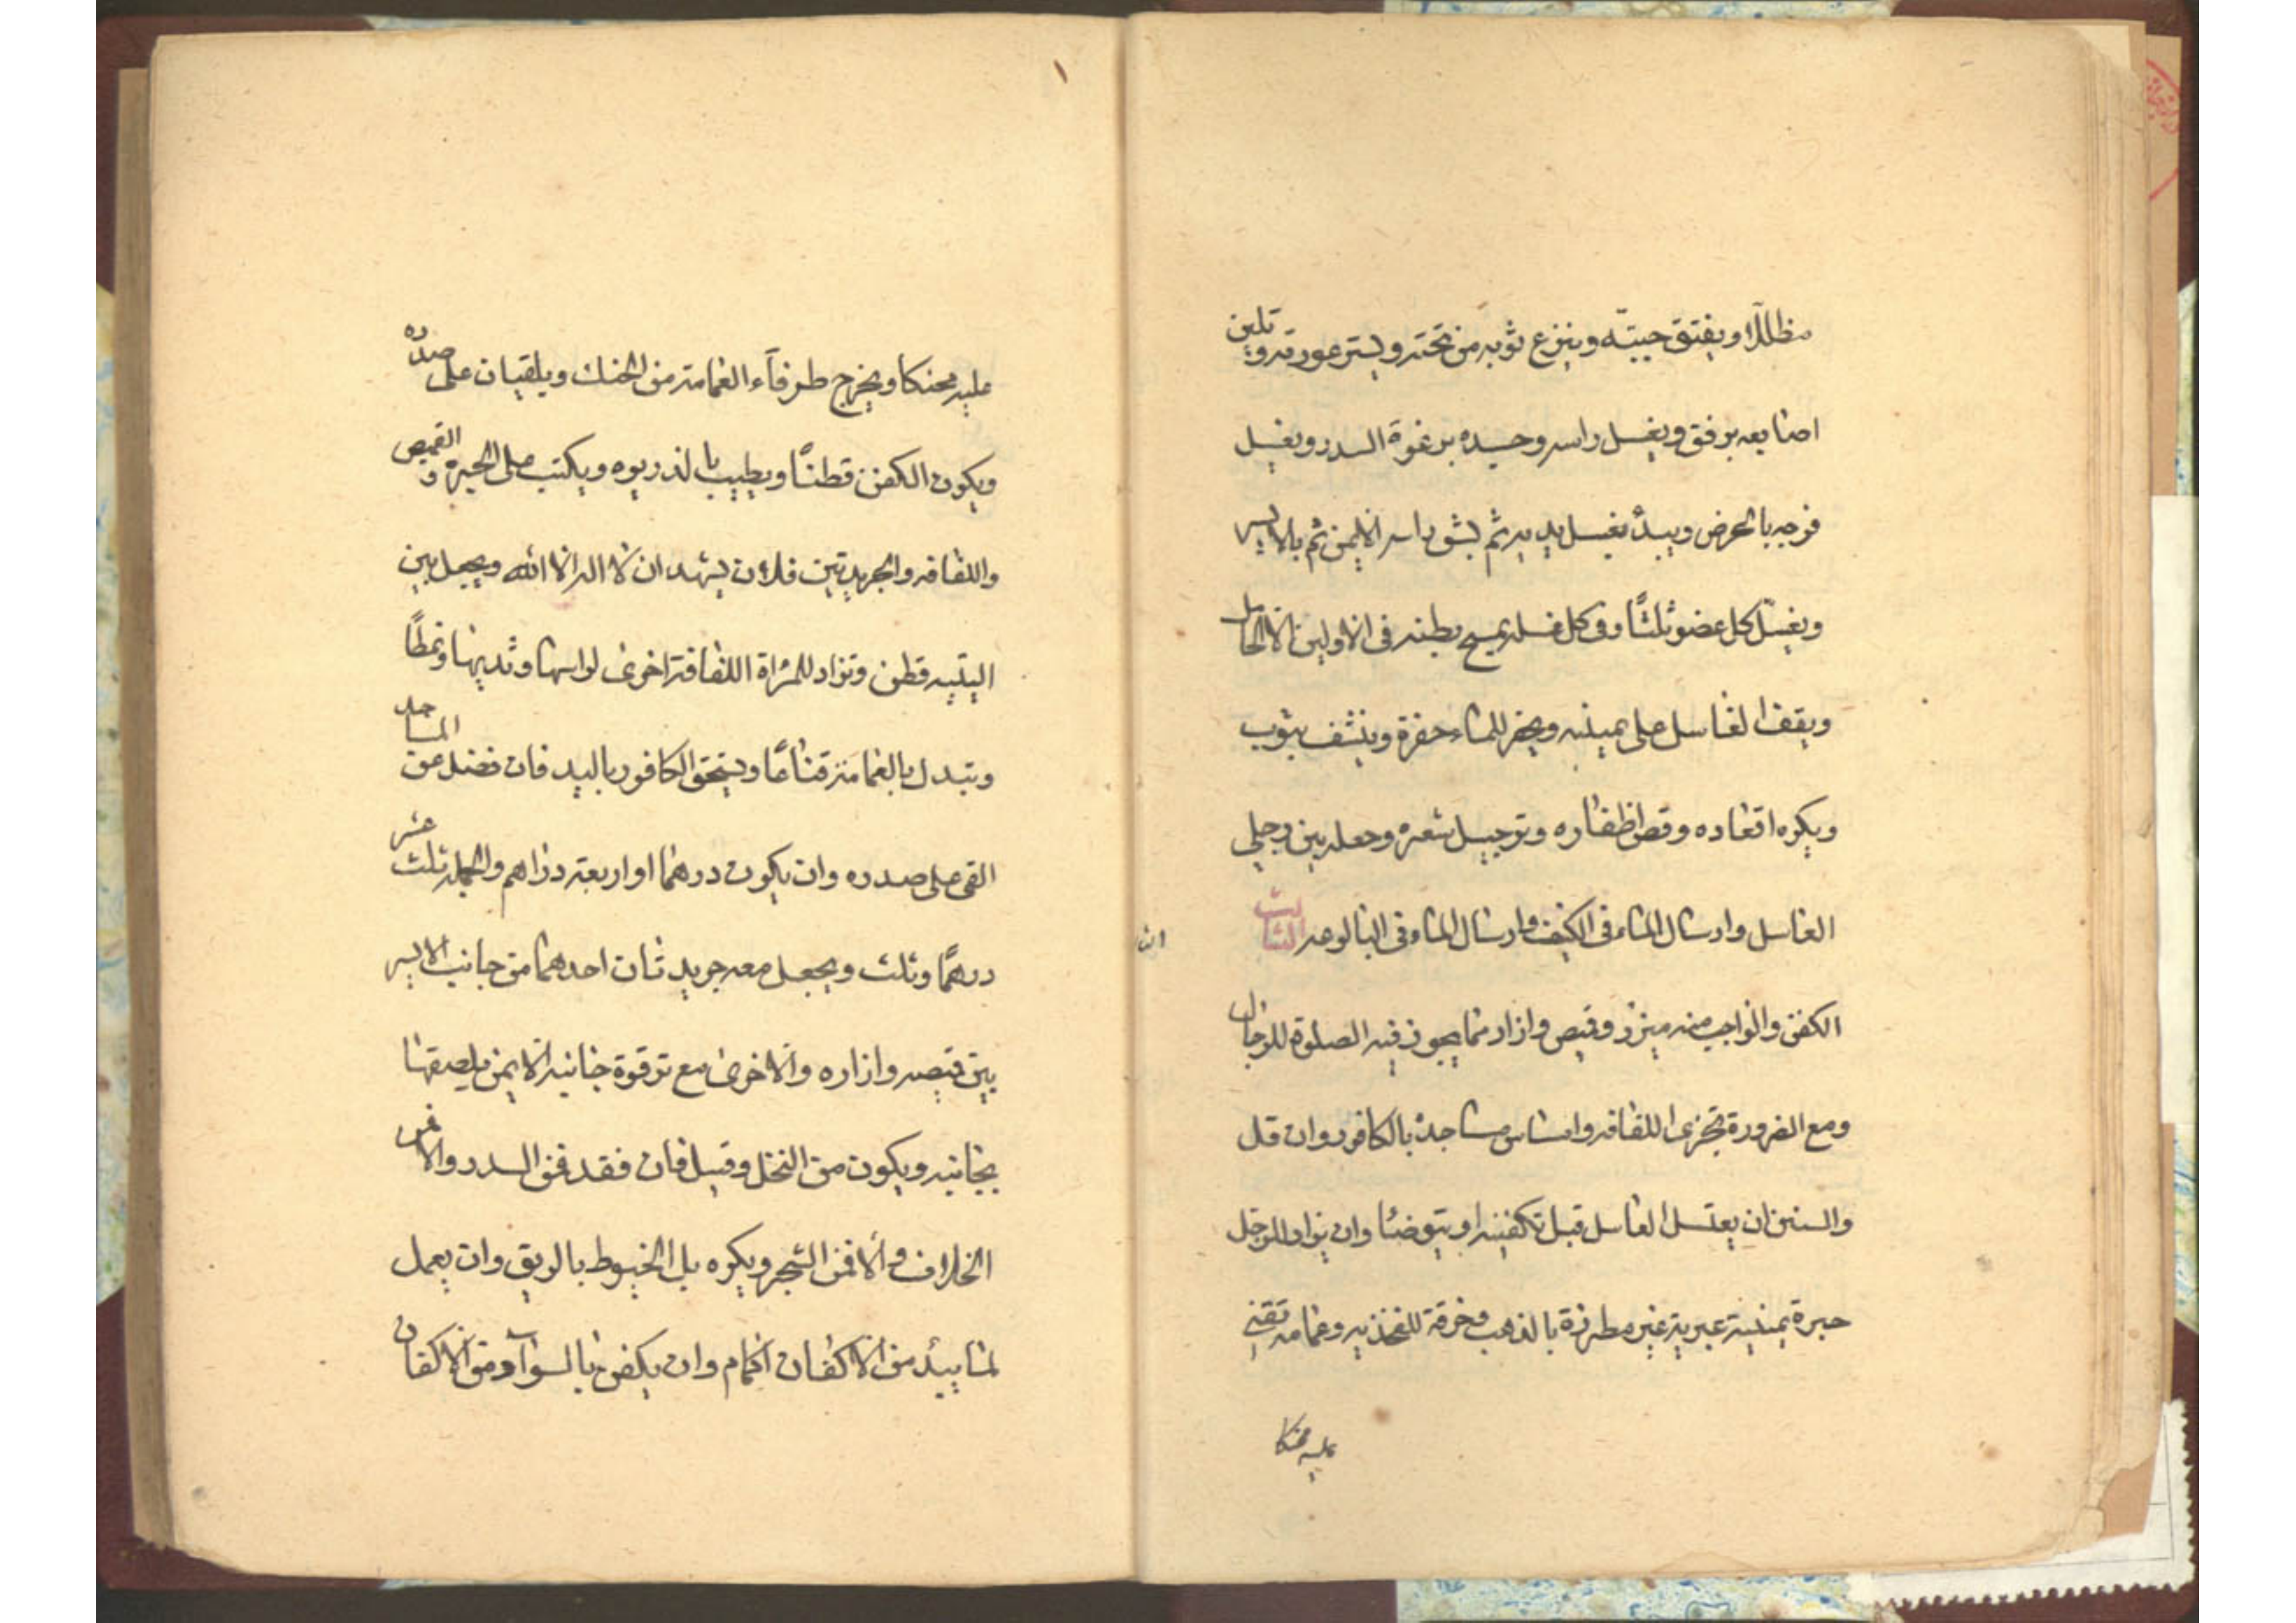 مظللا او يفتق جيبّه وينزع ثوبه من تحته ويستر عورته ويلين
اصابعه برفق ويغسل راسه وجسده برغوة السدر ويغسل
فرجه بالحرض ويبدأ بغسل يديه ثم بشق راسه الايمن ثم بالايسر
ويغسل كل عضو ثلثًا وفى كل غسلة يمسح بطنه فى الاولين الا الحامل
ويقف الغاسل على يمينه ويحفر للماء حفرة وينشف بثوب
ويكره اقعاده وقص اظفاره وترجيل شعره وجعله بين رجلي
الغاسل وارسال الماء فى الكنيف وارسال الماء فى البالوعه الثالث
الكفن والواجب منه ميزر وقميص وازار مما يجوز فيه الصلوة للرجال
ومع الضرورة تجزى اللفافه وامساس مساجده بالكافور وان قل
والسنن ان يغتسل الغاسل قبل تكفينه او يتوضئا وان يزاد للرجل
حبرة يمنية عبرية غير مطرزة بالذهب وخرقة للفخذيه وعمامه تثني
عليه محنكا
١
عليه محنكا ويخرج طرفاء العمامة من الحنك ويلقيان على صدره
ويكون الكفن قطنًا ويطيب بالذريره ويكتب على الحبرة والقميص
واللفافه والجريدتين فلان يشهد ان لا اله الا الله ويجعل بين
اليتيه قطن وتزاد للمراة اللفافة اخرى لراسها وثدييها ونمطًا
وتبدل بالعمامة قناعًا ويسحق الكافور باليد فان فضل عن المساجد
القى على صدره وان يكون درهما او اربعة دراهم واكمله ثلث عشر
درهمًا وثلث ويجعل معه جريدتان احدهما من جانب الايسر
بين قميصه وازاره والاخرى مع ترقوة جانبه الايمن يلصقها
بجانبه ويكون من النخل وقيل فان فقد فمن السدر والا فمن
الخلاف والا فمن الشجر ويكره بل الخيوط بالريق وان يعمل
لما يبتدء من الاكفان اكمام وان يكفن بالسواد ومن الاكفان